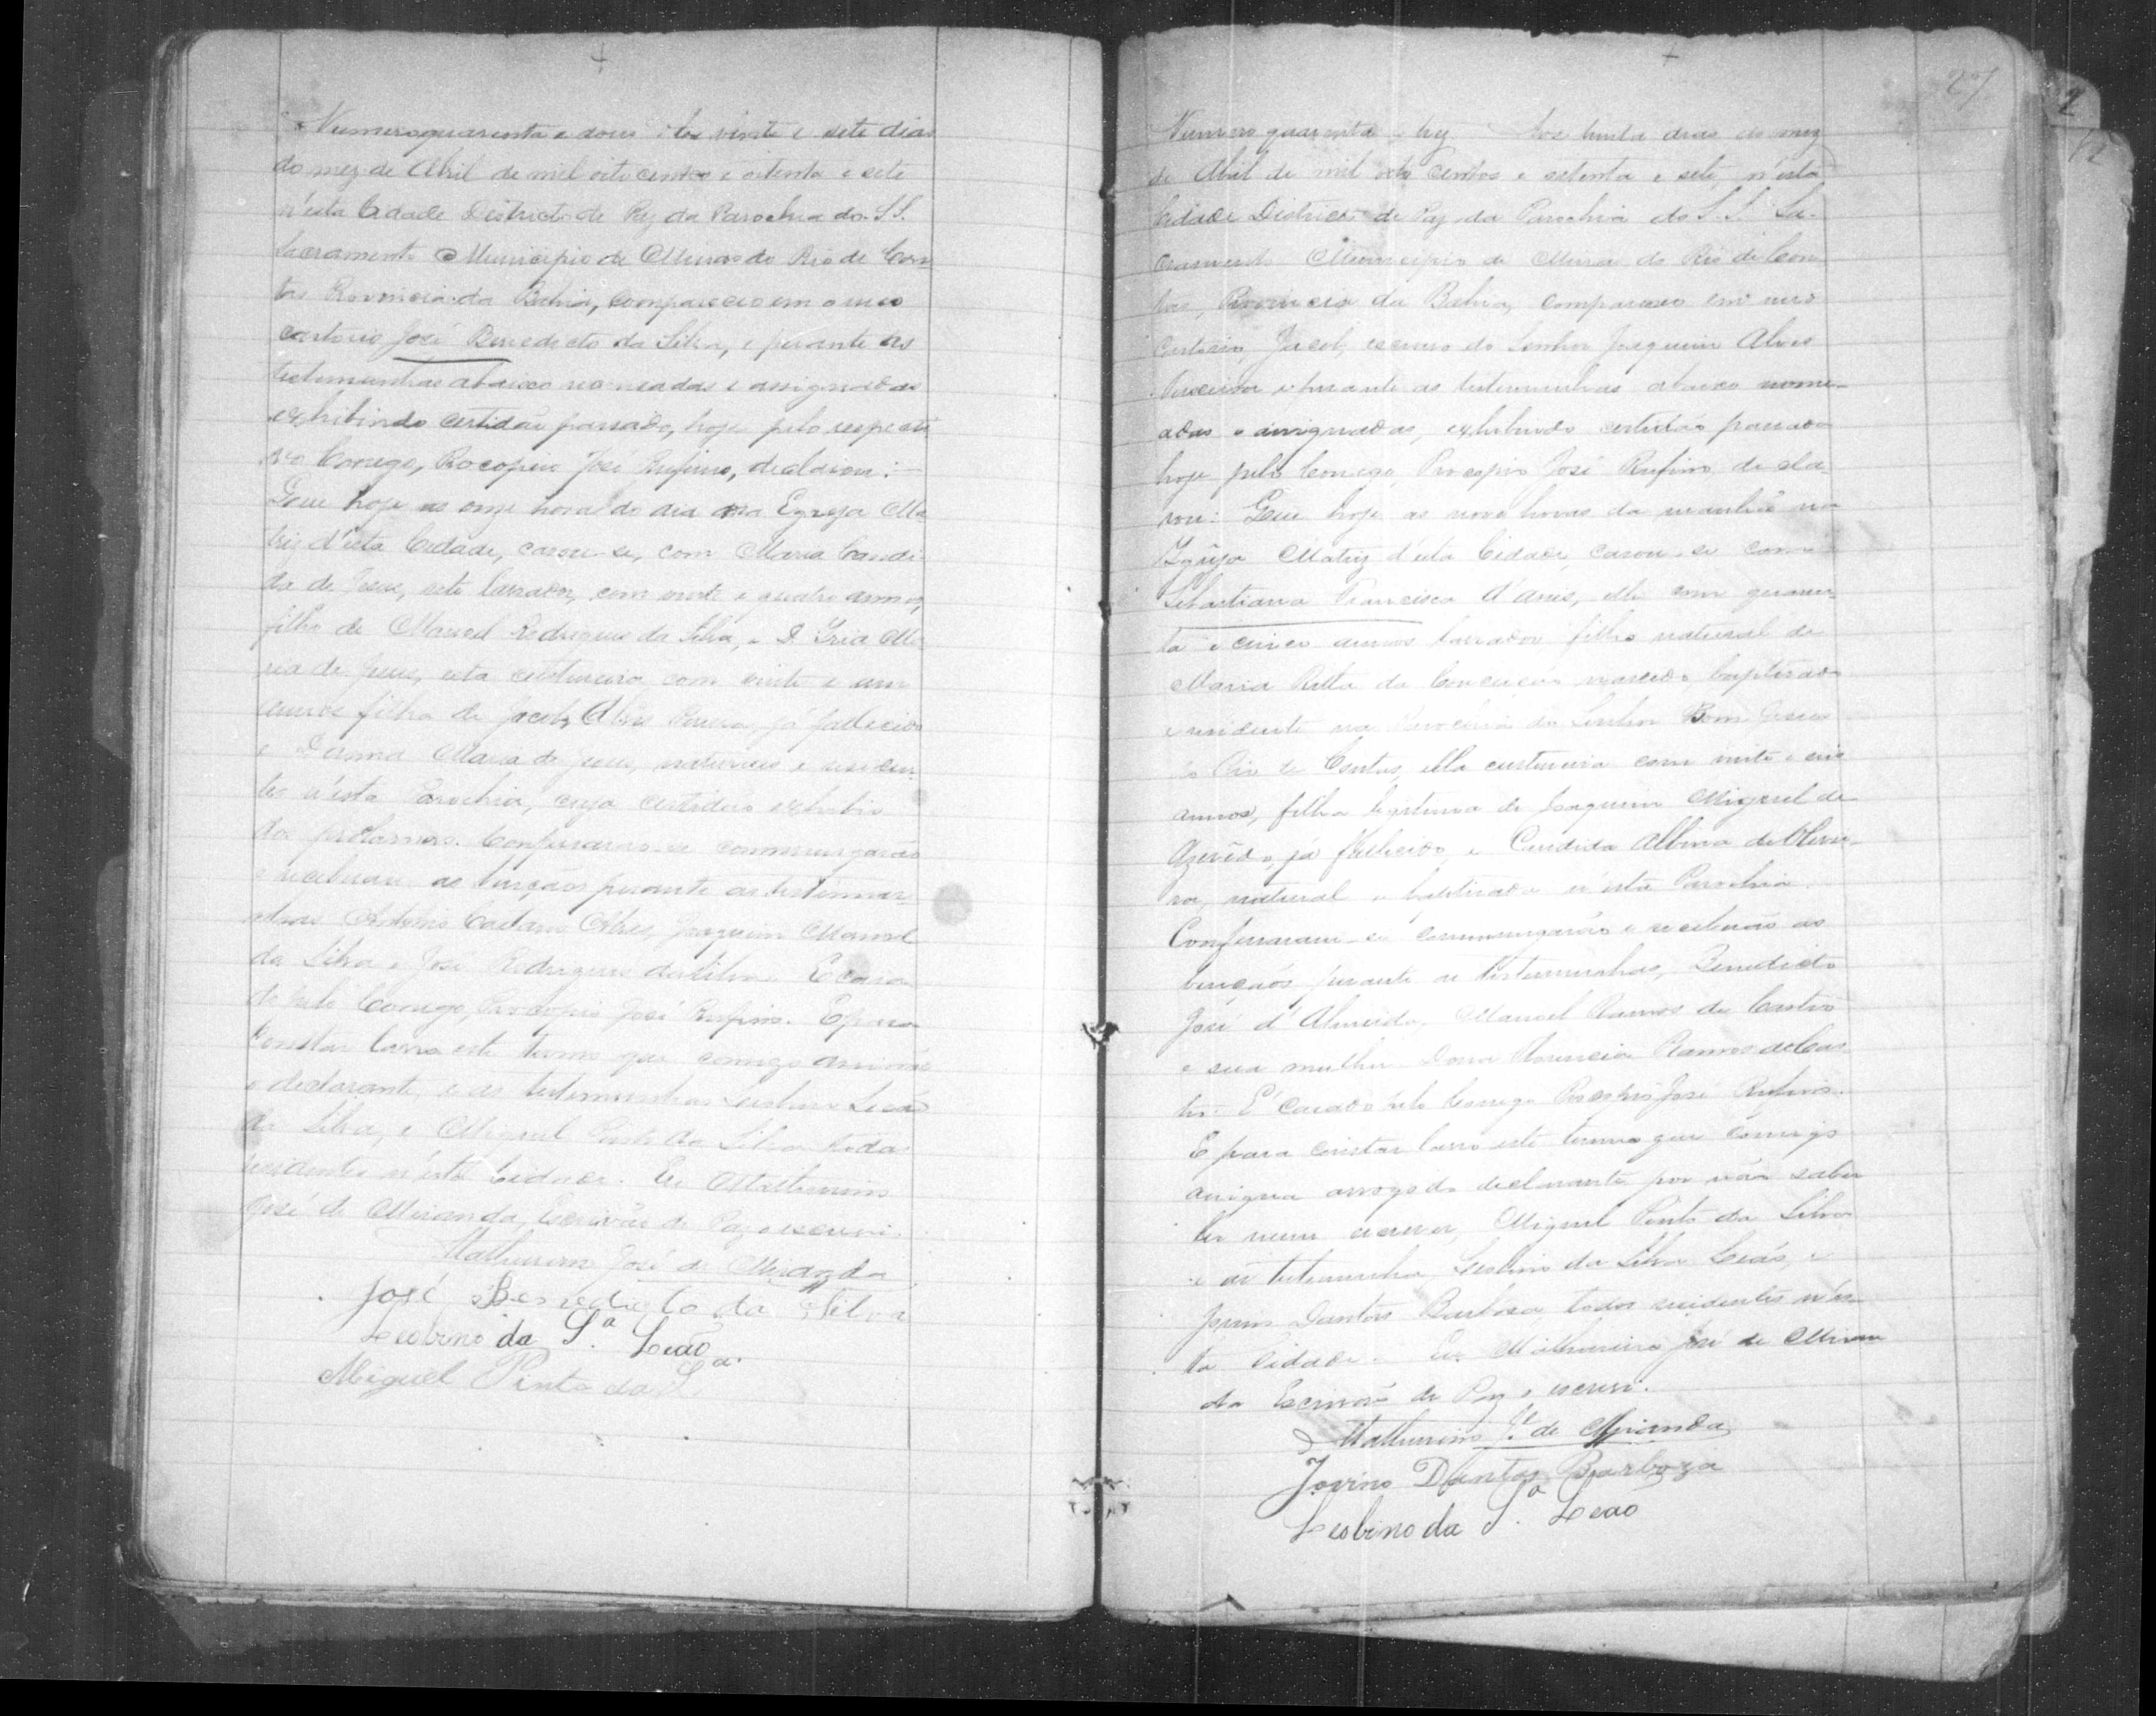 Numero quarenta e dous Aos vinte e sete dias
do mez de Abril de mil oito centos e setenta e sete
n'esta Cidade Districto de Paz da Parochia do S.S.
Sacramento Municipio de Minas do Rio de Con-
tas Provincia da Bahia, compareceo em o meo
cartorio José Benedicto da Silva, e perante as
testemunhas abaixo nomeadas e assignadas
exhibindo certidão passado, hoje pelo respecti
vo Conego, Procopio José Rufino, declarou:
Que hoje as onze horas do dia na Egreja Ma
triz d'esta Cidade, casou-se, com Maria Candi
da de Jesus, este lavrador, com vinte e quatro annos,
filho de Manoel Rodrigues da Silva, e D. Iria Ma
ria de Jesus, esta custureira com vinte e um
annos filha de Jacob Alves já fallecido
e Joanna Maria de Jesus, naturaes e residen-
tes n'esta Parochia, cuja certidão exhibio
dos proclamas. Confessarão-se commungarão
e receberão as bençãos perante as testemu
nhas Antonio Caetano Alves, Joaquim Manoel
da Silva e José Rodrigues da Silva. E casa
do pelo Conego, Procopio José Rufino. E para
constar lavro este termo que comigo
o declarante, e as testemunhas Leobino Leão
da Silva, e Miguel Pinto da Silva todas
residentes n'esta Cidade. Eu Mathurino
José de Miranda, Escrivão de Paz o escrevi.
Mathurino José de Miranda
José Benedicto da Silva
Leobino da S.ª Leão
Miguel Pinto da S.ª
27
Numero quarenta e trez Aos trinta dias do mez
de Abril de mil oito centos e setenta e sete, n'esta
Cidade Districto de Paz da Parochia do S.S. Sa-
cramento Municipio de Minas do Rio de Con
tas, Provincia da Bahia, compareceo em meo
Cartorio, Jacob, escravo do Senhor Joaquim Alves
e perante as testemunhas abaixo nome-
adas e assignadas, exhibindo certidão passada
hoje pelo Conego Procopio José Rufino de cla-
rou: Que hoje as nove horas da manhã na
Igreja Matriz d'esta Cidade, casou-se com
Sebastiana Francisca d'Assis, elle com quaren-
ta e cinco annos lavrador filho natural de
Maria Ritta da Conceição nascido baptisado
e residente na Parochia do Senhor Bom Jesus
do Rio de Contas, ella custureira com vinte e seis
annos, filha legitima de Joaquim Miguel de
Azevêdo, já fallecido, e Candida Albina de Olivei-
ra, natural e baptisada n'esta Parochia.
Confessaram-se commungarão e receberão as
bençãos perante as testemunhas, Benedicto
José d'Almeida, Manoel Ramos de Castro
e sua mulher Dona Florencia Ramos de Cas
tro. E' casado pelo Conego Procopio José Rufino.
E para constar lavro este termo que comigo
assigna arrogo do declarante por não saber
ler nem escrever, Miguel Pinto da Silva
e as testemunha Leobino da Silva Leão, e
Jovino Dantas Barbosa todos residentes n'es
ta Cidade. Eu Mathurino José de Miran
da Escrivão de Paz o escrevi.
Mathurino J.é de Miranda
Jovino Dantas Barboza
Leobino da S.ª Leão